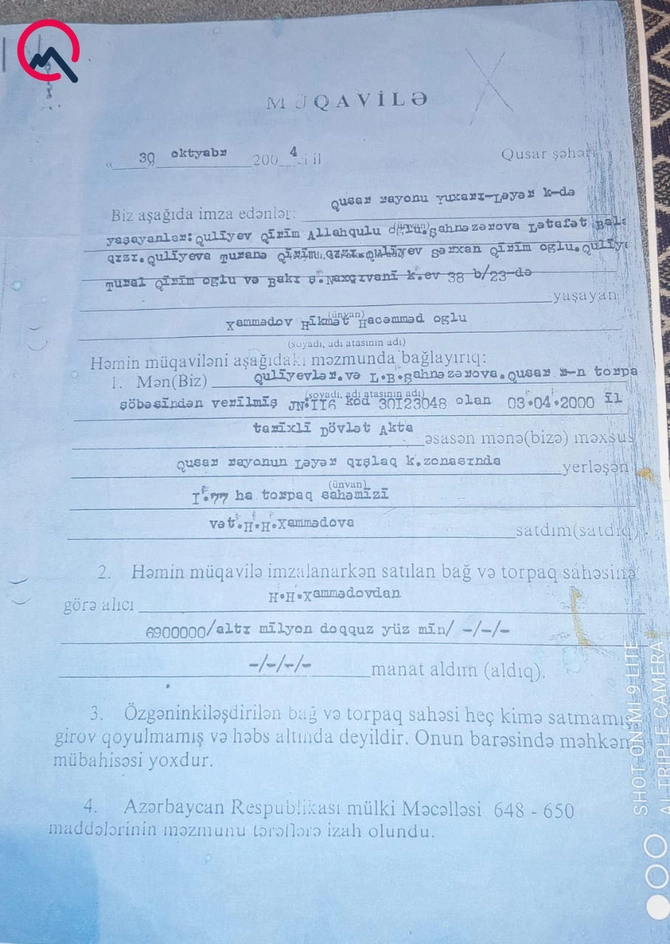 MÜQAVİLƏ
" 30 oktyabr 200 4 -i il Qusar şəhəri
Qusar rayonu Yuxarı-Ləyər k-də
Biz aşağıda imza edənlər:
yaşayanlar:Quliyev Qirim Allahqulu oğlu.Şahnəzərova Lətafət Bala
(ünvan)
qızı.Quliyeva Turanə Qirim qızı.Quliyev Sərxan Qirim oglu.Quliye
Tural Qirim oglu və Bakı ş.Naxçıvani k.ev 38 b/23-də
yaşayan
(ünvan)
Xəmmədov Hikmət Hacəmməd oglu
(soyadı, adı atasının adı)
Həmin müqaviləni aşağıdakı məzmunda bağlayırıq:
1. Mən(Biz) Quliyevlər.və L.B.Şahnəzərova.Qusar r-n torpa
(soyadı, adı atasının adı)
şöbəsindən verilmiş JN:II6 kod 30I23048 olan 03.04.2000 il
tarixli Dövlət Aktə
əsasən mənə(bizə) məxsus
Qusar rayonun Ləyər qışlaq k.zonasında
yerləşən
(ünvan)
I.77 ha torpaq sahəmizi
vət.H.H.Xəmmədova
satdım(satdıq).
2. Həmin müqavilə imzalanarkən satılan bağ və torpaq sahəsinə
görə alıcı H.H.Xəmmədovdan
6900000/altı milyon doqquz yüz min/ -/-/-
-/-/-/- manat aldım (aldıq).
3. Özgəninkiləşdirilən bağ və torpaq sahəsi heç kimə satmamış
girov qoyulmamış və həbs altında deyildir. Onun barəsində məhkəm
mübahisəsi yoxdur.
4. Azərbaycan Respublikası mülki Məcəlləsi 648 - 650
maddələrinin məzmunu tərəflərə izah olundu.
SHOT ON MI 9 LITE
AI TRIPLE CAMERA